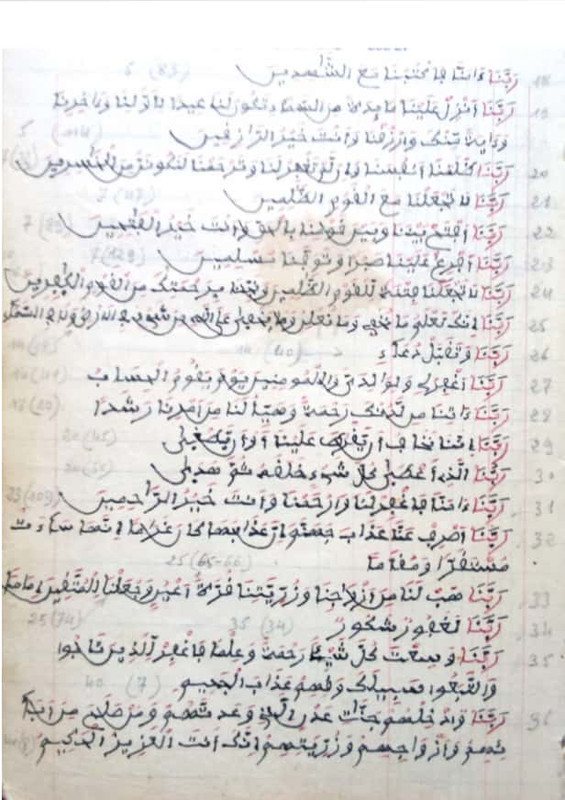 18 رَبَّنَا ءَامَنَّا فَاكْتُبْنَا مَعَ الشَّٰهِدِينَ 5 (83)
19 رَبَّنَا أَنزِلْ عَلَيْنَا مَائِدَةً مِنَ السَّمَاءِ تَكُونُ لَنَا عِيدًا لِأَوَّلِنَا وَءَاخِرِنَا
وَءَايَةً مِنْكَ وَارْزُقْنَا وَأَنْتَ خَيْرُ الرَّازِقِينَ 5 (114)
20 رَبَّنَا ظَلَمْنَا أَنفُسَنَا وَإِن لَمْ تَغْفِرْ لَنَا وَتَرْحَمْنَا لَنَكُونَنَّ مِنَ الْخَٰسِرِينَ
21 رَبَّنَا لَا تَجْعَلْنَا مَعَ الْقَوْمِ الظَّٰلِمِينَ 7 (47)
22 رَبَّنَا افْتَحْ بَيْنَنَا وَبَيْنَ قَوْمِنَا بِالْحَقِّ وَأَنْتَ خَيْرُ الْفَٰتِحِينَ 7 (89)
23 رَبَّنَا أَفْرِغْ عَلَيْنَا صَبْرًا وَتَوَفَّنَا مُسْلِمِينَ 7 (126)
24 رَبَّنَا لَا تَجْعَلْنَا فِتْنَةً لِلْقَوْمِ الظَّٰلِمِينَ وَنَجِّنَا بِرَحْمَتِكَ مِنَ الْقَوْمِ الْكَٰفِرِينَ
25 رَبَّنَا إِنَّكَ تَعْلَمُ مَا نُخْفِي وَمَا نُعْلِنُ وَمَا يَخْفَىٰ عَلَى اللَّهِ مِنْ شَيْءٍ فِي الْأَرْضِ وَلَا فِي السَّمَاءِ
26 رَبَّنَا وَتَقَبَّلْ دُعَاءِ 14 (40)
27 رَبَّنَا اغْفِرْ لِي وَلِوَالِدَيَّ وَلِلْمُؤْمِنِينَ يَوْمَ يَقُومُ الْحِسَابُ 14 (41)
28 رَبَّنَا ءَاتِنَا مِن لَّدُنكَ رَحْمَةً وَهَيِّئْ لَنَا مِنْ أَمْرِنَا رَشَدًا 18 (10)
29 رَبَّنَا إِنَّنَا نَخَافُ أَنْ يَفْرُطَ عَلَيْنَا أَوْ أَنْ يَطْغَىٰ 20 (45)
30 رَبُّنَا الَّذِي أَعْطَىٰ كُلَّ شَيْءٍ خَلْقَهُ ثُمَّ هَدَىٰ
31 رَبَّنَا ءَامَنَّا فَاغْفِرْ لَنَا وَارْحَمْنَا وَأَنْتَ خَيْرُ الرَّاحِمِينَ 23 (109)
32 رَبَّنَا اصْرِفْ عَنَّا عَذَابَ جَهَنَّمَ إِنَّ عَذَابَهَا كَانَ غَرَامًا إِنَّهَا سَاءَتْ
مُسْتَقَرًّا وَمُقَامًا 25 (65-66)
33 رَبَّنَا هَبْ لَنَا مِنْ أَزْوَاجِنَا وَذُرِّيَّتِنَا قُرَّةَ أَعْيُنٍ وَاجْعَلْنَا لِلْمُتَّقِينَ إِمَامًا
34 رَبَّنَا لَغَفُورٌ شَكُورٌ 35 (34) 25 (74)
35 رَبَّنَا وَسِعْتَ كُلَّ شَيْءٍ رَحْمَةً وَعِلْمًا فَاغْفِرْ لِلَّذِينَ تَابُوا
وَاتَّبَعُوا سَبِيلَكَ وَقِهِمْ عَذَابَ الْجَحِيمِ 40 (7)
36 رَبَّنَا وَأَدْخِلْهُمْ جَنَّٰتِ عَدْنٍ الَّتِي وَعَدتَّهُمْ وَمَنْ صَلَحَ مِنْ ءَابَا
ئِهِمْ وَأَزْوَاجِهِمْ وَذُرِّيَّتِهِمْ إِنَّكَ أَنْتَ الْعَزِيزُ الْحَكِيمُ